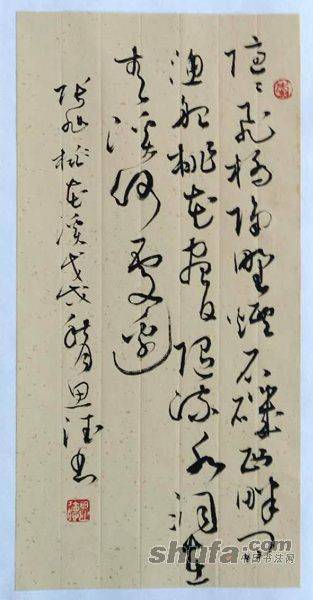 隱〻飛橋隔野煙石磯西畔問
漁船桃花盡日隨流水洞在
青溪何處邊
張旭桃花溪戊戌思德书
shufa.com
中国书法网